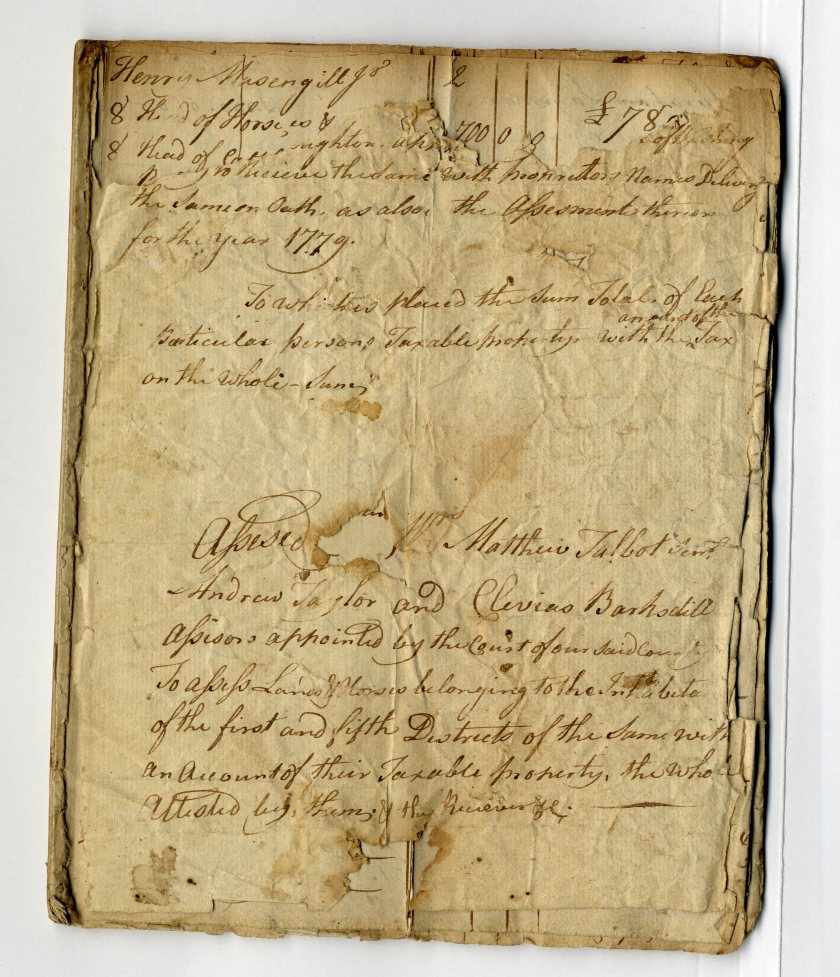 Henry Masengill Jr 2
8 Head of Horses &
8 Head of 700 0 0 £787
to Recieve the Same with propritors Names Deliver
the Same on Oath, as also, the Assesments thereon
for the year 1779.
To which is placed the Sum Total. of Each
amount of the
Particular persons Taxable property with the Tax
on the Whole - Sum
Assesed Wm Matthew Talbot Senr
Andrew Taylor and Clevias Barksdill
Assisors appointed by the Court of our Said County
To assess Lands & Horses belonging to the Inhabita
of the first and fifth Districts of the Same with
an Account of their Taxable property, the Whole
Attested by them, & the Reciever &c.